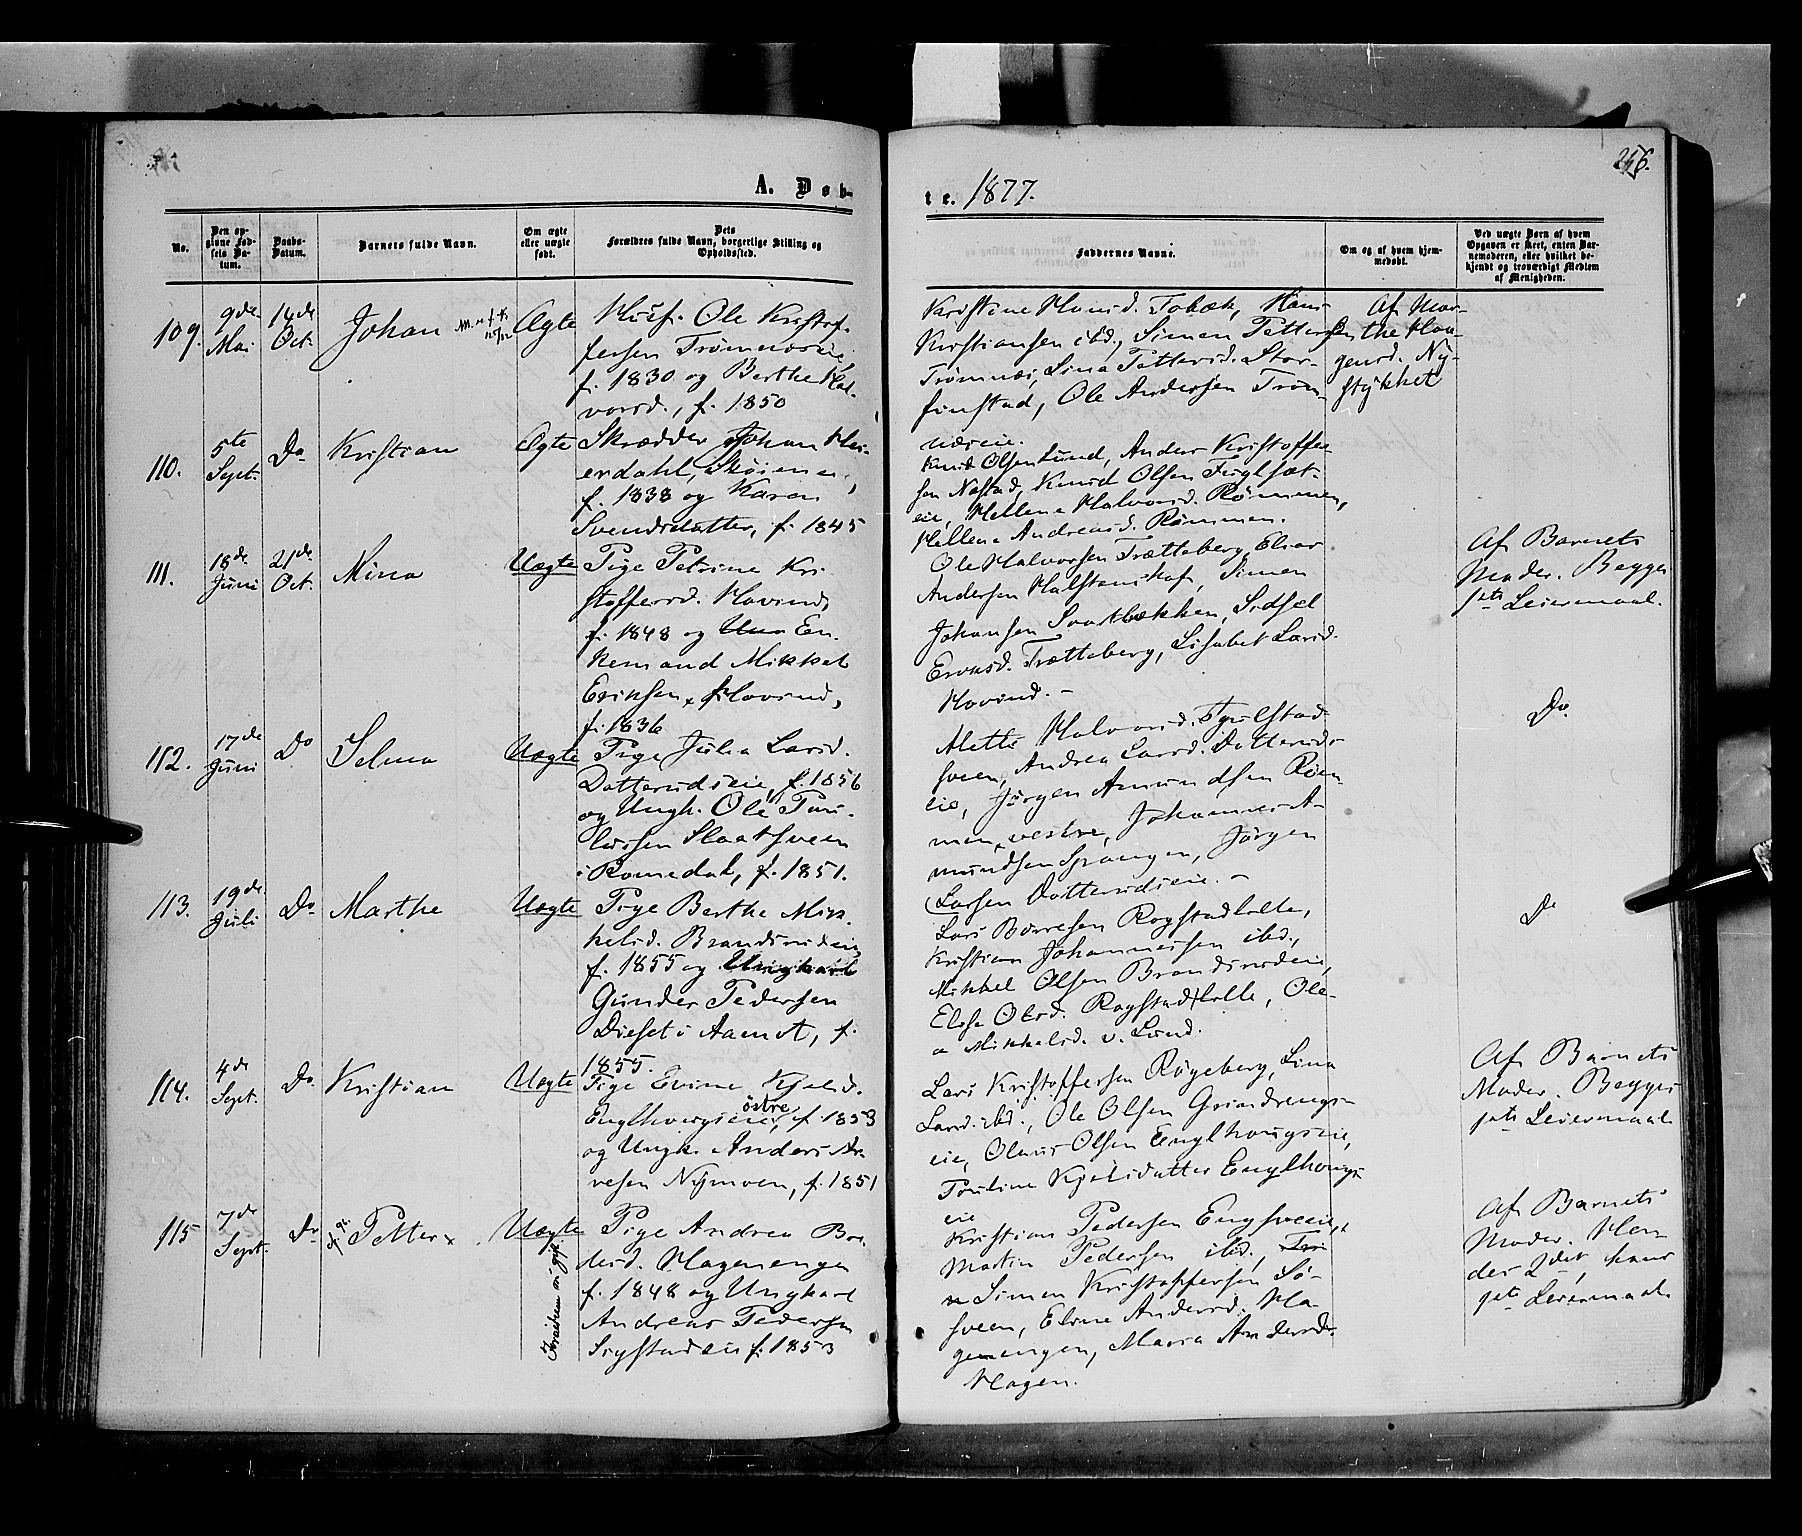 A. Døb-
te. 1877.
256.
No.
Den op-
givne Fød-
sels Da-
tum.
Daabs-
Datum.
Barnets fulde Navn.
Om ægte
eller uægte
født.
Dets
Forældres fulde Navn, borgerlige Stilling og
Opholdssted.
Faddernes Navne.
Om og af hvem hjem-
medøbt.
Ved uægte Børn af hvem
Opgaven er skeet, enten Bar-
nemoderen, eller hvilket be-
kjendt og troværdigt Medlem
af Menigheden.
109.
9de
Mai
14de
Oct.
Johan
Ægte
Husf. Ole Kristof-
fersen Trømnæseie,
f. 1830 og Berthe Hal-
vorsd., f. 1850
Kristine Hansd. Tobæk, Hans
Kristiansen ibd., Simen Petters
Trømnæs, Lina Pettersd. Stor-
finstad, Ole Andersen Trøm-
næseie.
Af Mar-
the Haa-
gensd. Ny-
stykket
110.
5te
Sept.
Do
Kristian
Ægte
Skrædder Johan Hei-
erdahl, Skøien,
f. 1838 og Karen
Svendsdatter, f. 1845
Knud Olsen Lund, Anders Kristoffer-
sen Nastad, Knud Olsen Fuglsæt-
eie, Hellene Halvorsd. Rømmen,
Hellene Andreasd. Rømmen.
111.
18de
Juni
21de
Oct.
Mina
Uægte
Pige Petrine Kri-
stoffersd. Hovind,
f. 1848 og En-
kemand Mikkel
Eriksen Hovind,
f. 1836
Ole Halvorsen Trætteberg, Elias
Andersen Halstenshof, Simen
Johansen Svartbækken, Sidsel
Trætteberg, Lisabet Larsd.
Hovind. -
Af Barnets
Moder. Begges
1ste Leiermaal.
112.
17de
Juni
Do
Selma
Uægte
Pige Julia Larsd.
Dotterudseie, f. 1856
og Ungk. Ole Pau-
lussen Slaatsveen
i Romedal, f. 1851.
Alette Halvorsd. Fjulstad-
sveen, Andrea Larsd. Dotteruds-
eie, Jørgen Amundsen Røm-
men, vestre, Johannes A-
mundsen Sprangen, Jørgen
Larsen Dotterudseie. -
Do
113.
19de
Juli
Do
Marthe
Uægte
Pige Berthe Mik-
kelsd. Brandsrudeie,
f. 1855 og Ungkarl
Gunder Pedersen
Diesct i Aamot, f.
1855.
Lars Børresen Rogstadlille,
Kristian Johannessen ibd.,
Mikkel Olsen Brandsrudeie,
Elise Olsd. Rogstadlille, Ole-
a Mikkelsd. v. Lund.
Do
114.
4de
Sept.
Do
Kristian
Uægte
Pige Evine Kjelsd.
Englhaugseie østre, f. 1853
og Ungk. Anders Ar-
vesen Nymoen, f. 1851
Lars Kristoffersen Røgeberg, Lina
Larsd. ibd., Ole Olsen Grindrengs-
eie, Olaus Olsen Englhaugseie,
Pouline Kjelsdatter Englhaugs-
eie
Af Barnets
Moder. Begges
1ste Leiermaal
115
7de
Sept.
Do
Petter
Uægte
Pige Andrea Bor-
tersd. Hagenengen
f. 1848 og Ungkarl
Andreas Pedersen
Sigstadeie f. 1853
Kristian Pedersen Engsveeie,
Martin Pedersen ibd.,
Simen Kristoffersen Sø-
sveen, Eline Andersd. Ha-
genengen, Maria Andersd.
Hagen.
Af Barnets
Moder. Hen-
des 2det, hans
1ste Leiermaal.